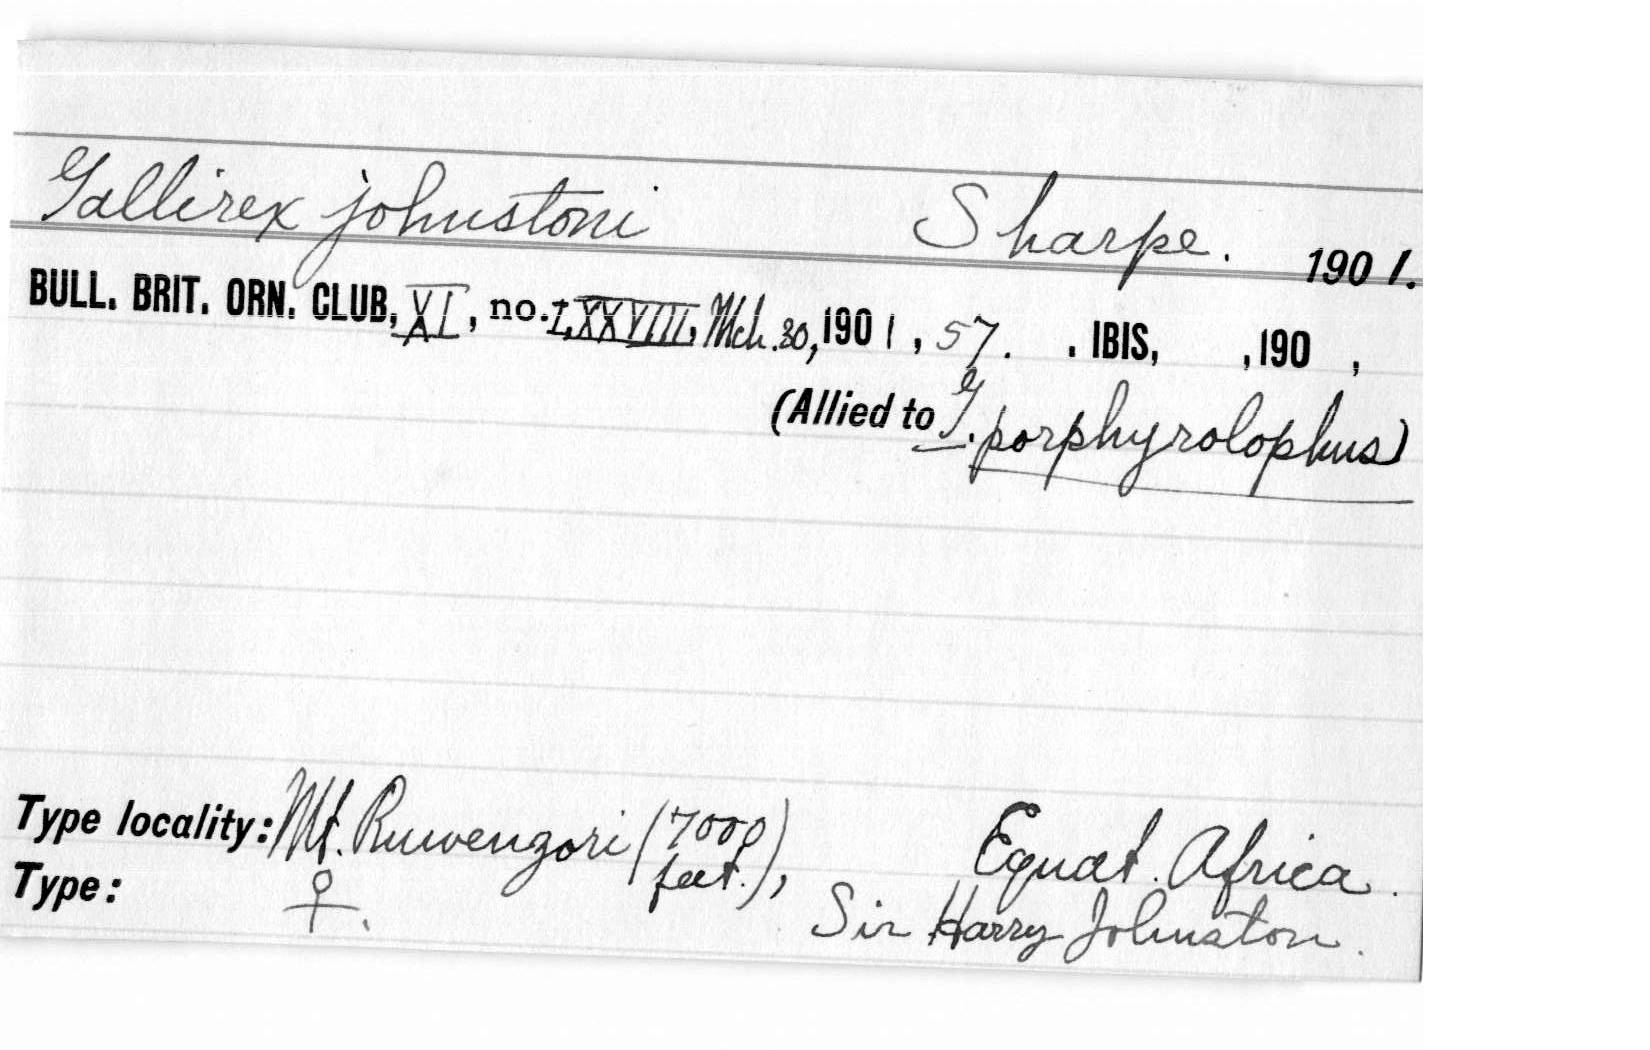 Gallirex johnstoni Sharpe. 1901.
BULL. BRIT. ORN. CLUB, XI, no. LXXVIII, Mch. 30, 1901, 57. . IBIS, , 190 ,
(Allied to G. porphyrolophus)
Type locality: Mt. Ruwenzori (7000 feet.), Equat. Africa.
Type: ♀. Sir Harry Johnston.